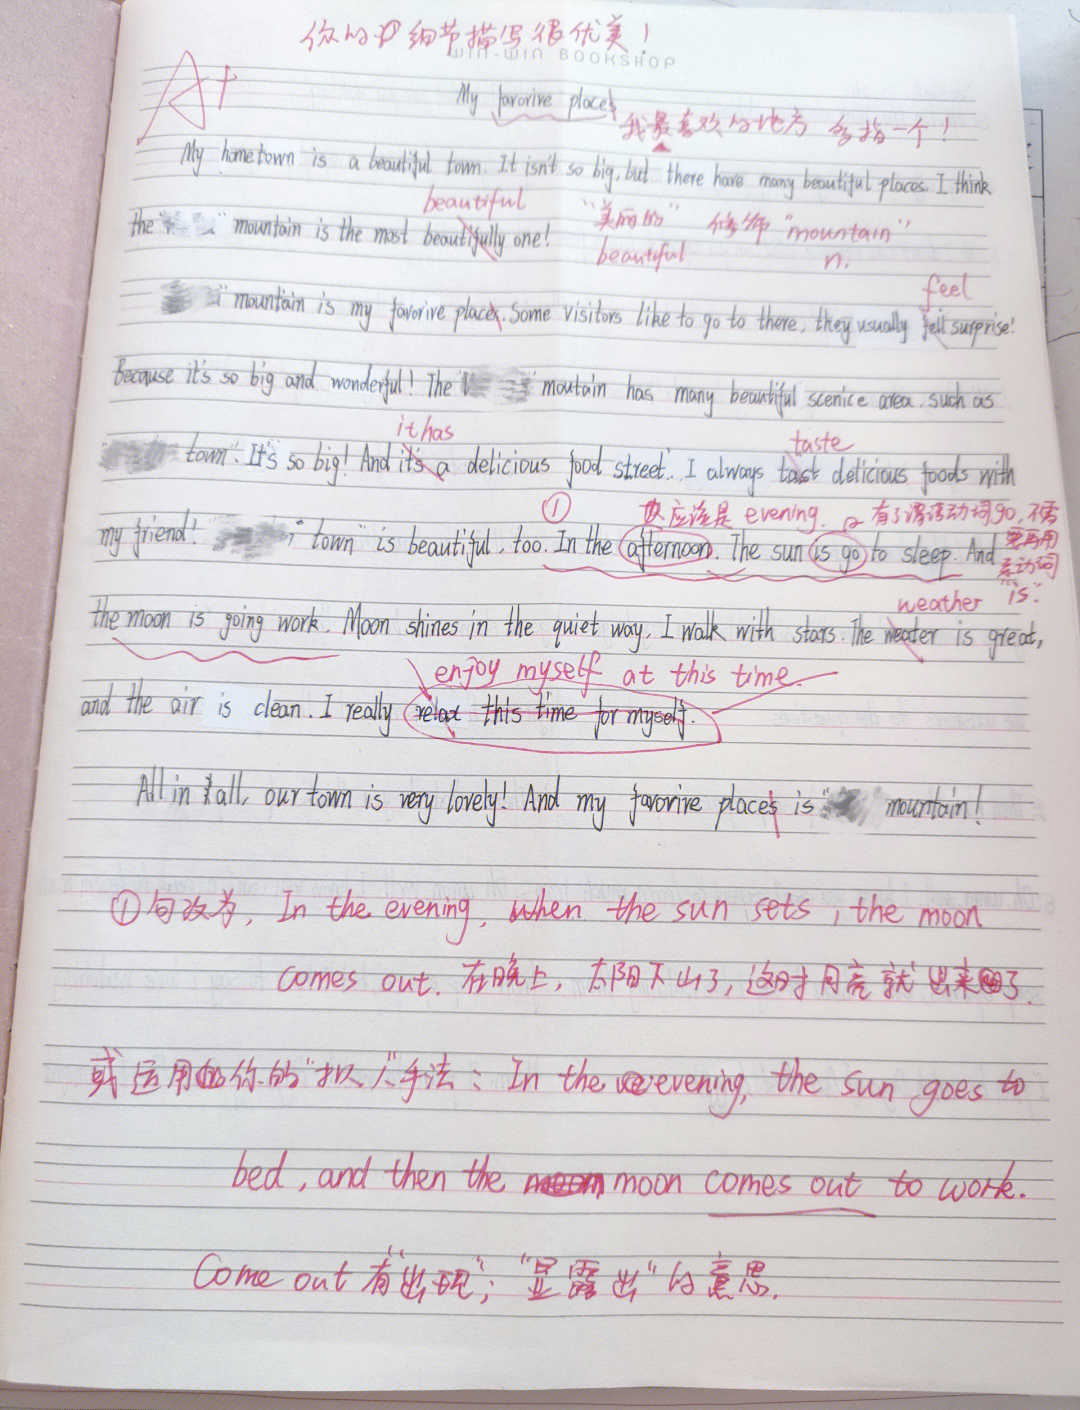 你的细节描写很优美！
WIN-WIN BOOKSHOP
A+
My favorive places
我最喜欢的地方 多指一个！
My hometown is a beautiful town. It isn't so big, but there have many beautiful places. I think
beautiful "美丽的" 修饰 "mountain"
the " " mountain is the most beautifully one!
beautiful n.
feel
" mountain is my favorive places. Some visitors like to go to there, they usually fell surprise!
Because it's so big and wonderful! The " " moutain has many beautiful scenice area. such as
it has taste
" town". It's so big! And it's a delicious food street. I always tast delicious foods with
① 应该是 evening. 有了谓语动词go, 不需要再用系动词"is".
my friend! town" is beautiful, too. In the afternoon. The sun is go to sleep. And
weather
the moon is going work. Moon shines in the quiet way. I walk with stars. The weater is great,
enjoy myself at this time.
and the air is clean. I really relax this time for myself.
All in all, our town is very lovely! And my favorive places is " mountain!
①句改为, In the evening, when the sun sets, the moon
comes out. 在晚上, 太阳下山了, 这时月亮就出来了.
或运用你的"拟人"手法: In the evening, the sun goes to
bed, and then the moon comes out to work.
Come out 有"出现"; "显露出"的意思.